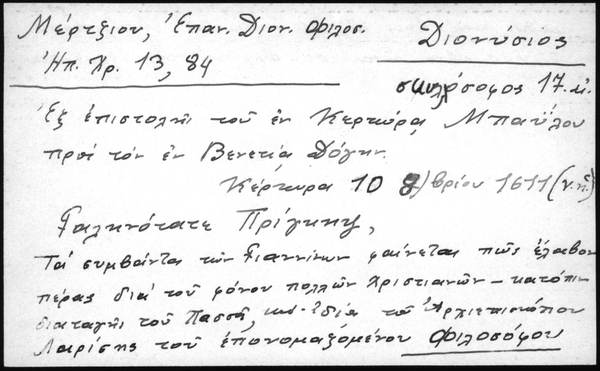 Μέρτζιου, Ἐπαν. Διον. Φιλοσ.
Ἠπ. Χρ. 13, 84
Διονύσιος
σκυλόσοφος 17. αἰ.
Ἐξ ἐπιστολῆς τοῦ ἐν Κερκύρᾳ Μπαΐλου
πρὸς τὸν ἐν Βενετίᾳ Δόγην.
Κέρκυρα 10 8/βρίου 1611 (ν.ἡ.)
Γαληνότατε Πρίγκηψ,
Τὰ συμβάντα τῶν Γιαννίνων φαίνεται πῶς ἔλαβον
πέρας διὰ τοῦ φόνου πολλῶν Χριστιανῶν – κατόπιν
διαταγῆς τοῦ Πασσᾶ, καὶ ἰδίᾳ τοῦ Ἀρχιεπισκόπου
Λαρίσης τοῦ ἐπονομαζομένου Φιλοσόφου